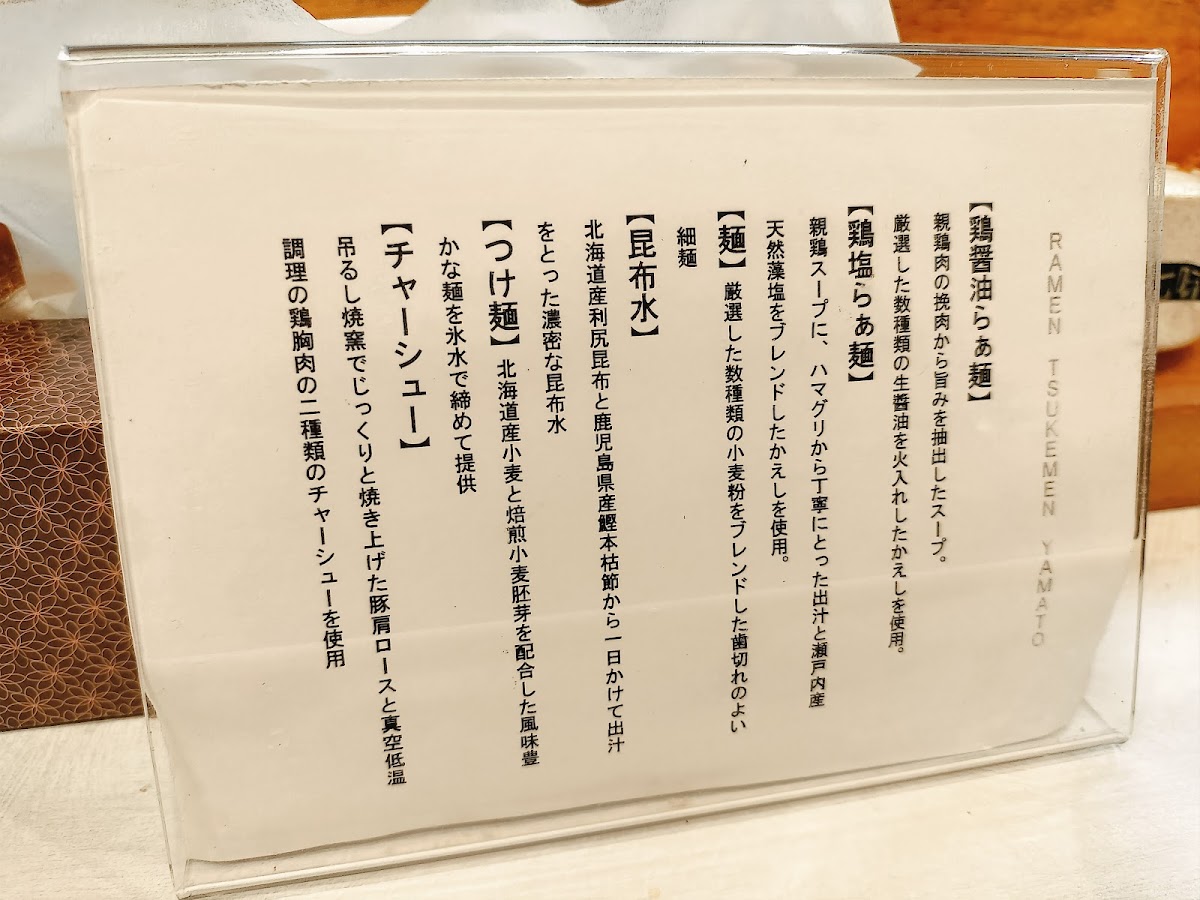 RAMEN TSUKEMEN YAMATO
【鶏醤油らぁ麺】
親鶏肉の挽肉から旨みを抽出したスープ。
厳選した数種類の生醤油を火入れしたかえしを使用。
【鶏塩らぁ麺】
親鶏スープに、ハマグリから丁寧にとった出汁と瀬戸内産
天然藻塩をブレンドしたかえしを使用。
【麺】厳選した数種類の小麦粉をブレンドした歯切れのよい
細麺
【昆布水】
北海道産利尻昆布と鹿児島県産鰹本枯節から一日かけて出汁
をとった濃密な昆布水
【つけ麺】北海道産小麦と焙煎小麦胚芽を配合した風味豊
かな麺を氷水で締めて提供
【チャーシュー】
吊るし焼窯でじっくりと焼き上げた豚肩ロースと真空低温
調理の鶏胸肉の二種類のチャーシューを使用